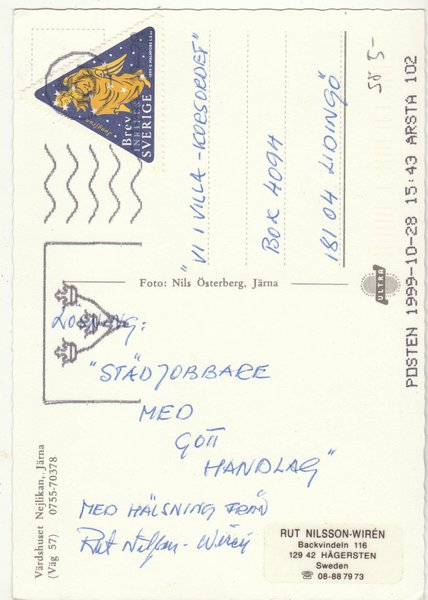 Brev
INRIKES
SVERIGE
Jungfrun
"VI I VILLA-KORSORDET"
BOX 4094
181 04 LIDINGÖ
POSTEN 1999-10-28 15:43 ARSTA 102
Foto: Nils Österberg, Järna
ULTRA
LÖSNING:
"STÄDJOBBARE
MED
GOTT
HANDLAG"
MED HÄLSNING FRÅN
Rut Nilsson-Wirén
Värdshuset Nejlikan, Järna
(Väg 57) 0755-70378
RUT NILSSON-WIRÉN
Backvindeln 116
129 42 HÄGERSTEN
Sweden
☏ 08-88 79 73